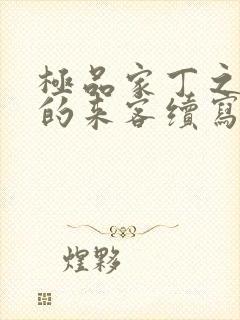 極品家丁之
的来客續寫
煌夥